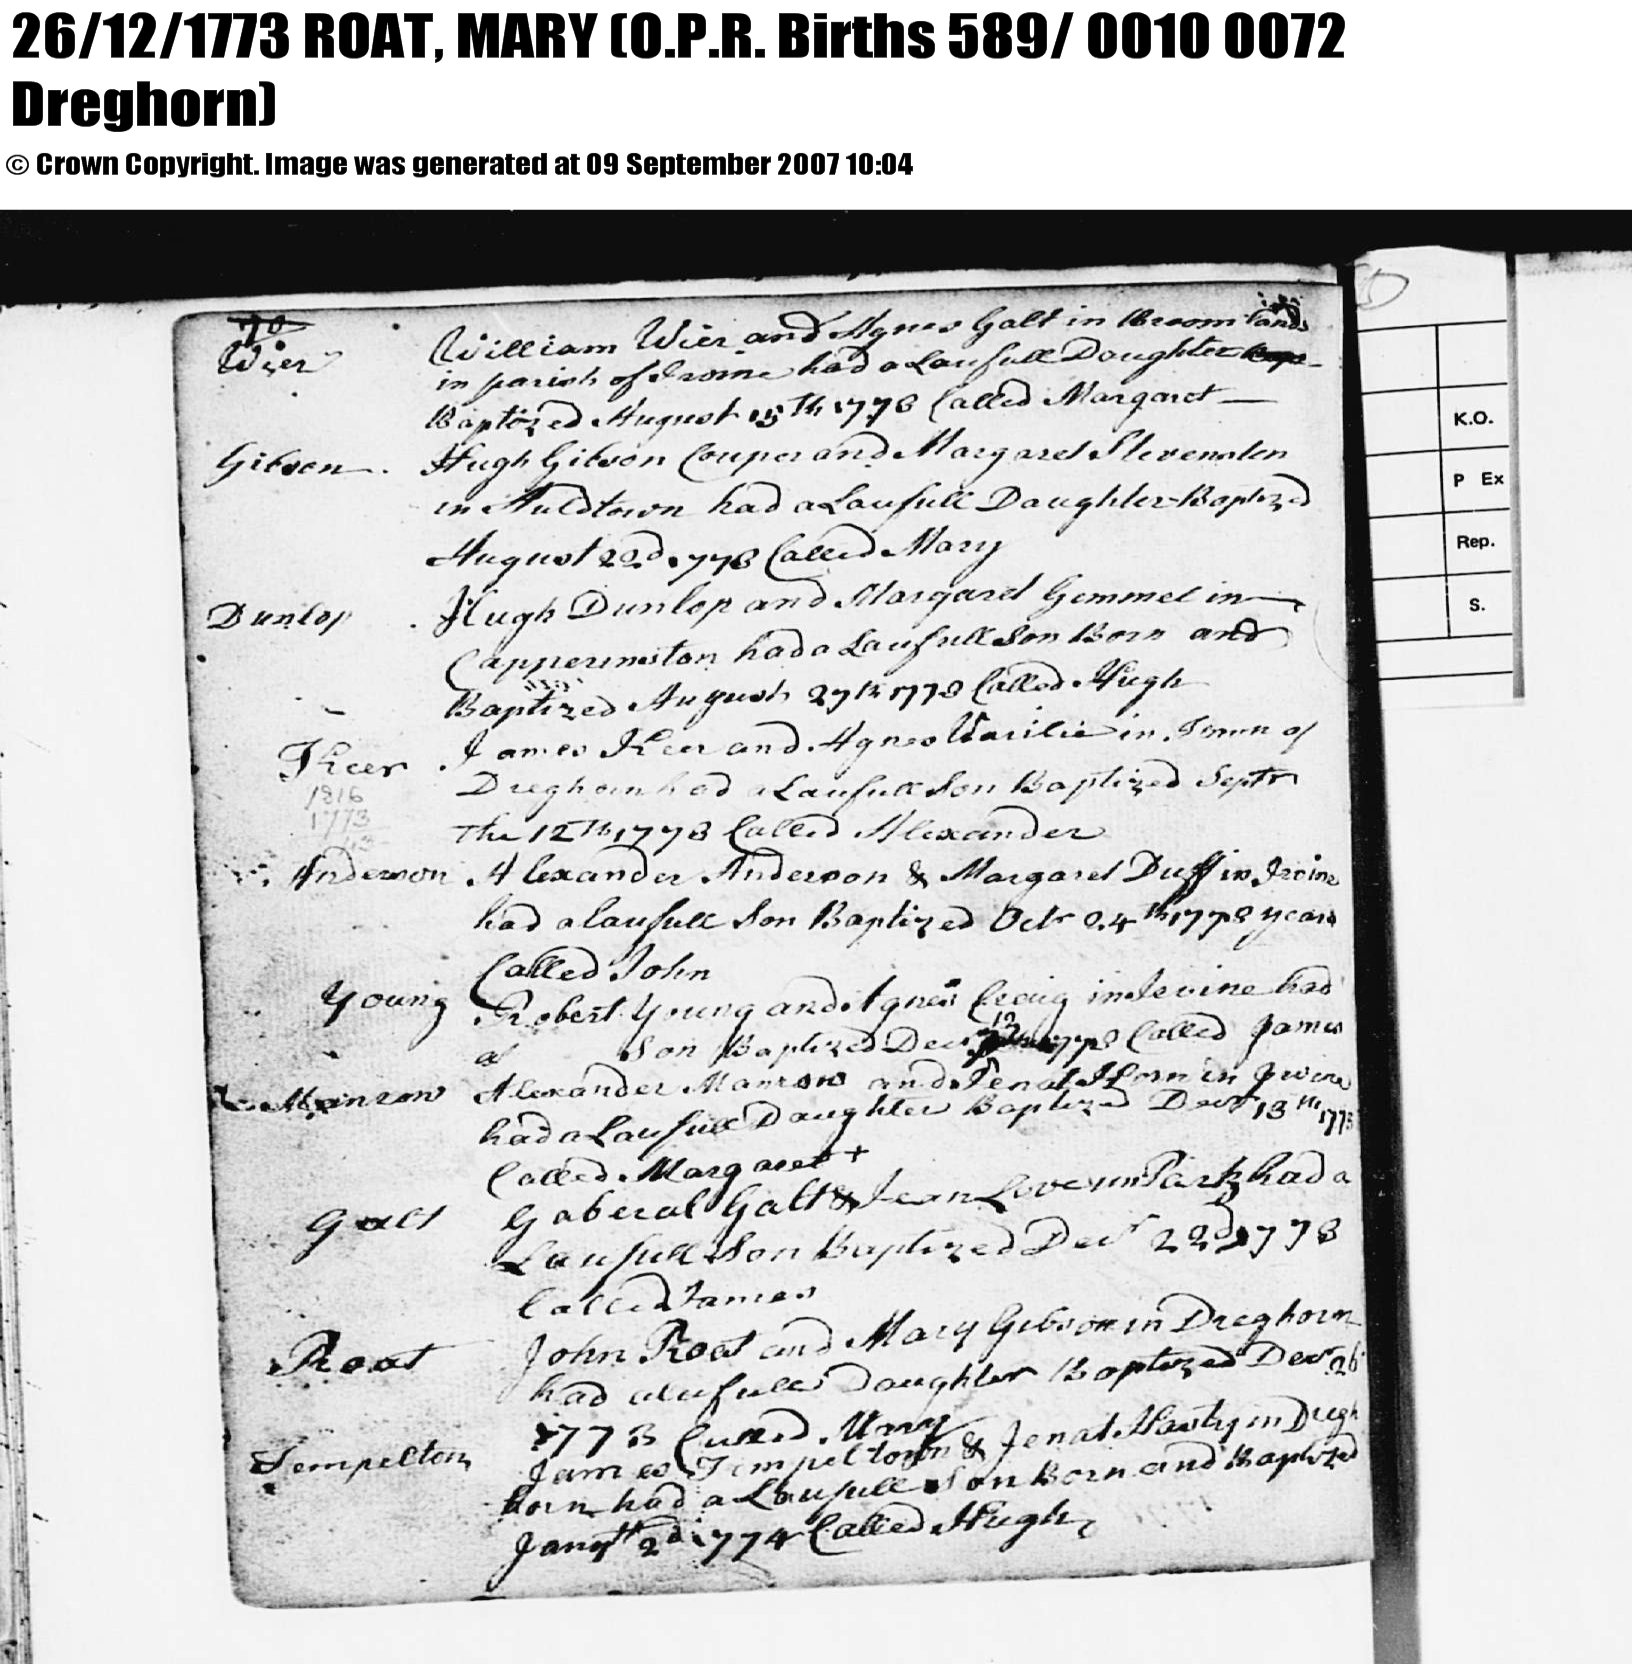 26/12/1773 ROAT, MARY (O.P.R. Births 589/ 0010 0072
Dreghorn)
© Crown Copyright. Image was generated at 09 September 2007 10:04
K.O.
P Ex
Rep.
S.
70
Wier William Wier and Agnes Galt in Broomlands
in parish of Irvine had a Laufull Daughter
Baptized August 15th 1773 Called Margaret
Gibson Hugh Gibson Couper and Margaret Stevenston
in Auldtown had a Laufull Daughter Baptized
August 22d 1773 Called Mary
Dunlop Hugh Dunlop and Margaret Gemmel in
Capperinston had a Laufull Son Born and
Baptized August 27th 1773 Called Hugh
Keer James Keer and Agnes in Town of
1816
1773
Dreghorn had a Laufull Son Baptized Septr
The 12th 1773 Called Alexander
Anderson Alexander Anderson & Margaret Duff in Irvine
had a laufull Son Baptized Octr 24th 1773 years
Called John
Young Robert Young and Agnes Craig in Irvine had
a Son Baptized Decr 12 1773 Called James
Manrow Alexander Manrow and Jenat in Irvine
had a Laufull Daughter Baptized Decr 13th 1773
Called Margaret +
Galt Gaberal Galt & Jean Love in Park had a
Laufull Son Baptized Decr 22d 1773
Called James
Roat John Roat and Mary Gibson in Dreghorn
had a lufull Daughter Baptized Decr 26
1773 Called Mary
Tempelton James Timpeltown & Jenat Hasty in Dregh
horn had a Laufull Son Born and Baptized
Jany 2d 1774 Called Hugh